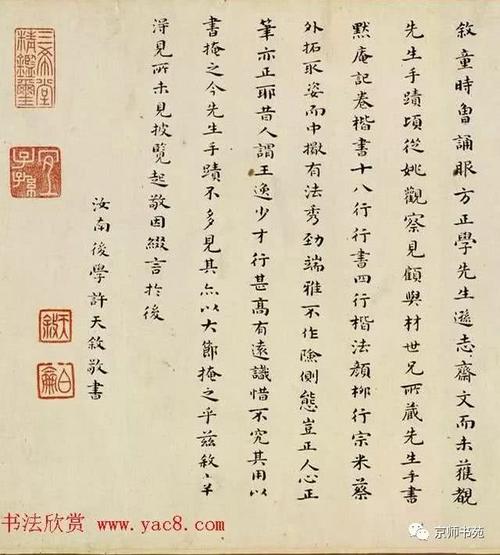 敘童時曾誦眼方正學先生遜志齋文而未獲覩
先生手蹟頃從姚觀察見顧與材世兄所藏先生手書
默庵記卷楷書十八行行書四行楷法顏柳行宗米蔡
外拓取姿而中擫有法秀勁端雅不作險側態豈正人心正
筆亦正耶昔人謂王逸少才行甚高有遠識惜不究其用以
書掩之今先生手蹟不多見其亦以大節掩之乎茲敘幸
得見所未見披覽起敬因綴言於後
汝南後學許天敘敬書
三希堂精鑑璽
宜子孫
天敘
书法欣赏 www.yac8.com
京师书苑